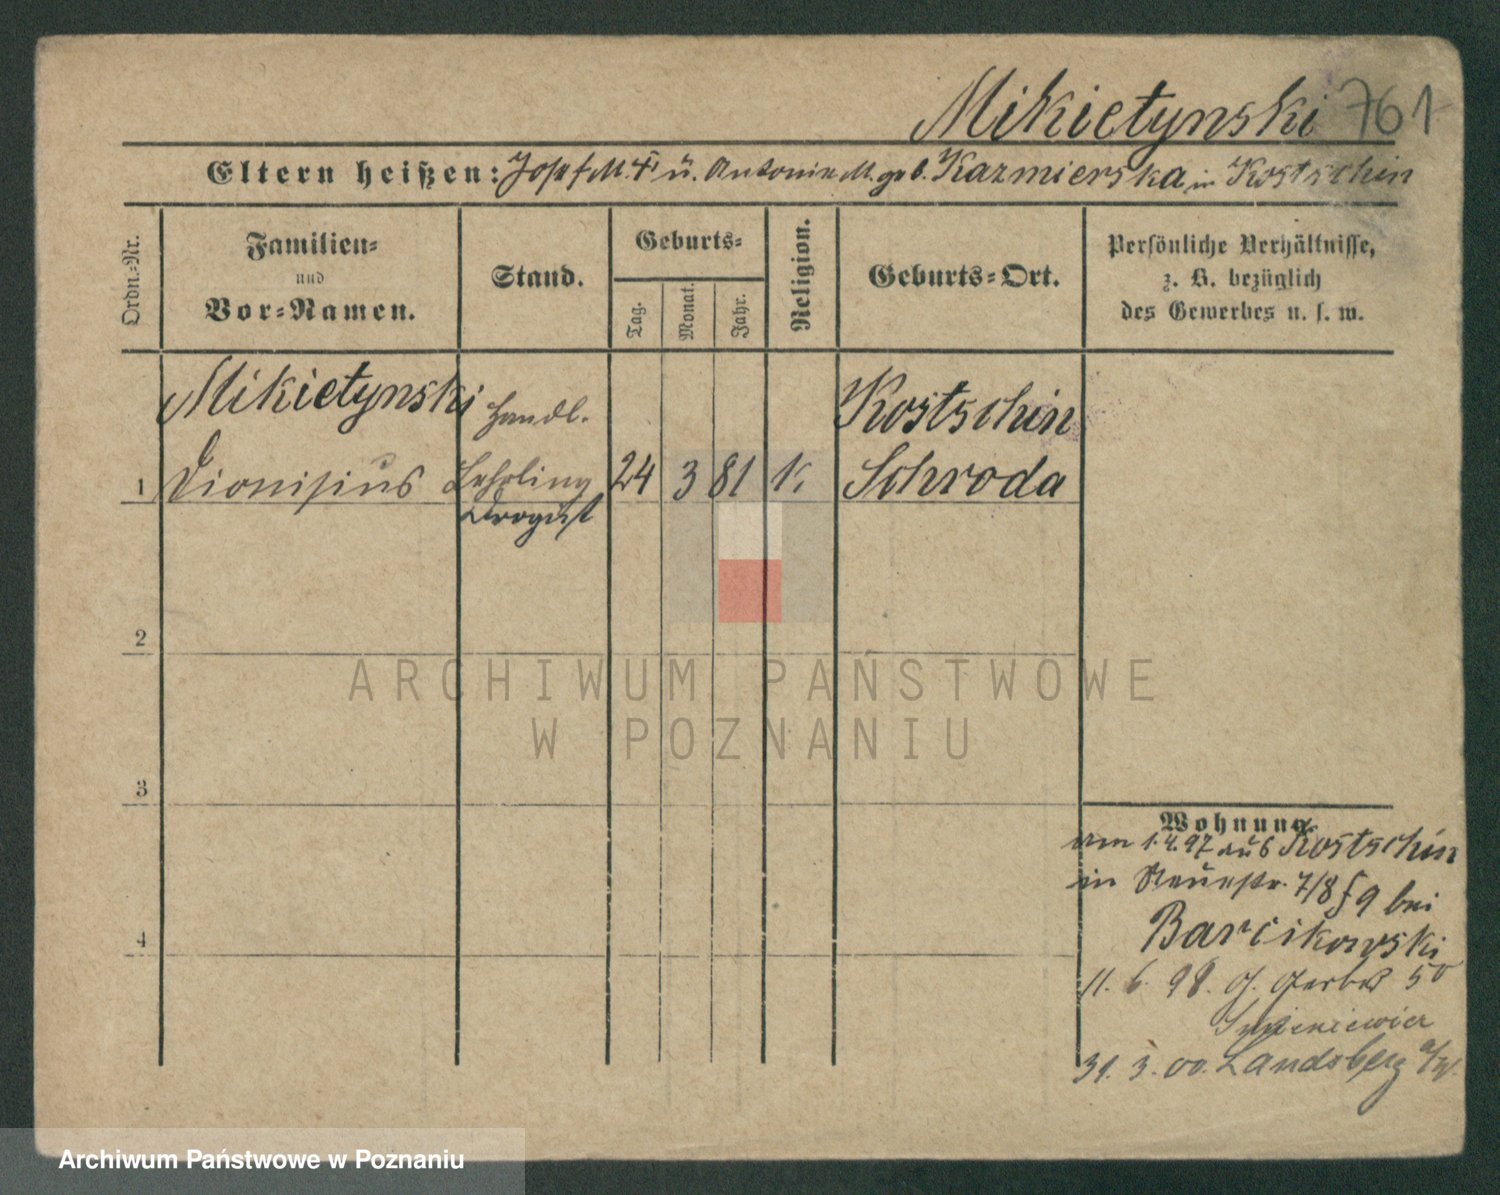 Mikietynski 761
Eltern heißen: Josef M. † u. Antonie M. geb. Kazmierska, in Kostschin
Ordn.-Nr.
Familien-
und
Vor-Namen.
Stand.
Geburts-
Tag.
Monat.
Jahr.
Religion.
Geburts-Ort.
Persönliche Verhältnisse,
z. B. bezüglich
des Gewerbes u. s. w.
Mikietynski Handl. Kostschin
1 Dionisius Lehrling 24 3 81 k. Schroda
Drogist
2
3
4
Wohnung.
am 1.4.97 aus Kostschin
in Neuestr. 7/8 bei
Barcikowski
11. 6. 98. Gerber 50
31. 3. 00. Landsberg a/W.
ARCHIWUM PAŃSTWOWE
W POZNANIU
Archiwum Państwowe w Poznaniu